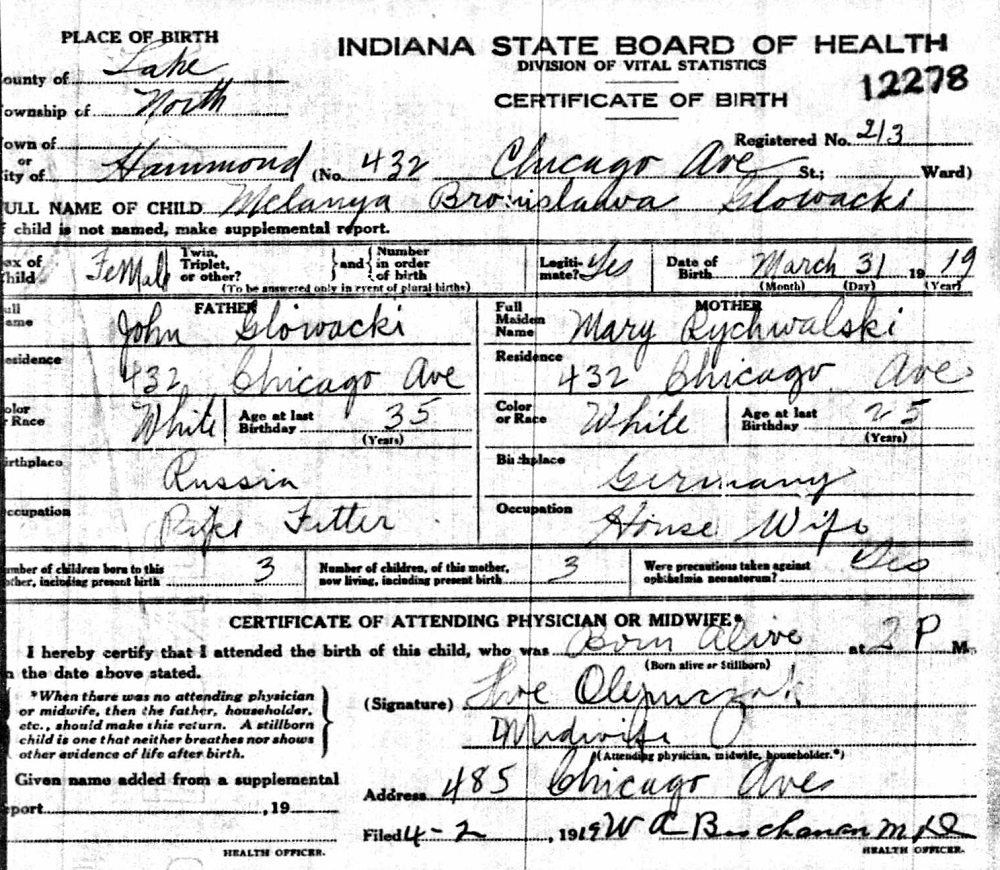 PLACE OF BIRTH
INDIANA STATE BOARD OF HEALTH
DIVISION OF VITAL STATISTICS
CERTIFICATE OF BIRTH
12278
ounty of Lake
ownship of North
Registered No. 213
own of
or
ity of Hammond (No. 432 Chicago Ave St.; Ward)
ULL NAME OF CHILD Melanya Bronislawa Glowacki
f child is not named, make supplemental report.
ex of Child FeMale Twin, Triplet, or other? } and { Number in order of birth
(To be answered only in event of plural births)
Legiti-mate? Yes
Date of Birth March 31 19 19
(Month) (Day) (Year)
FATHER
ull ame John Glowacki
MOTHER
Full Maiden Name Mary Rychwalski
esidence 432 Chicago Ave
Residence 432 Chicago Ave
olor r Race White Age at last Birthday 35 (Years)
Color or Race White Age at last Birthday 25 (Years)
irthplace Russia
Birthplace Germany
ccupation Pipe Fitter
Occupation House Wife
mber of children born to this other, including present birth 3
Number of children, of this mother, now living, including present birth 3
Were precautions taken against ophthalmia neonatorum? Yes
CERTIFICATE OF ATTENDING PHYSICIAN OR MIDWIFE*
I hereby certify that I attended the birth of this child, who was Born Alive at 2 P M.
(Born alive or Stillborn)
n the date above stated.
*When there was no attending physician
or midwife, then the father, householder,
etc., should make this return. A stillborn
child is one that neither breathes nor shows
other evidence of life after birth.
(Signature)
Midwife
(Attending physician, midwife, householder.*)
Given name added from a supplemental
port , 19
HEALTH OFFICER.
Address 485 Chicago Ave
Filed 4-2, 1919 W A Buchanan M D
HEALTH OFFICER.